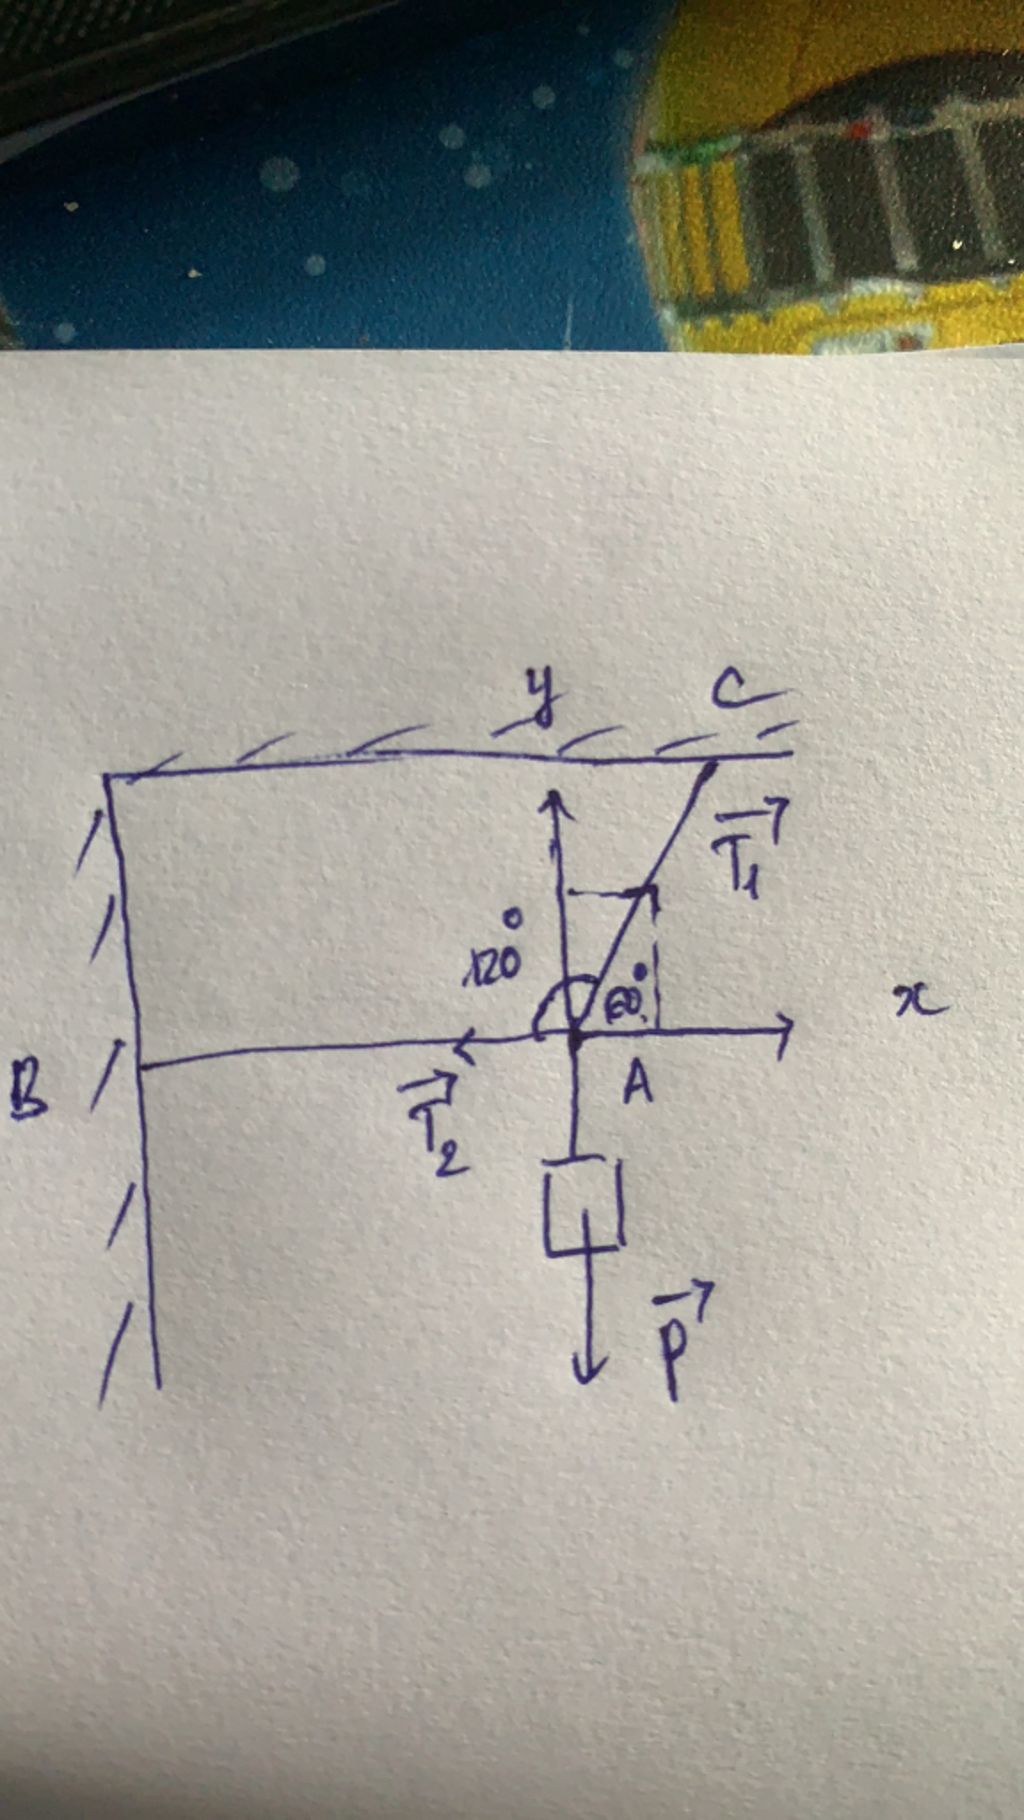 y
C
T₁
120°
60°
x
B
A
T₂
P